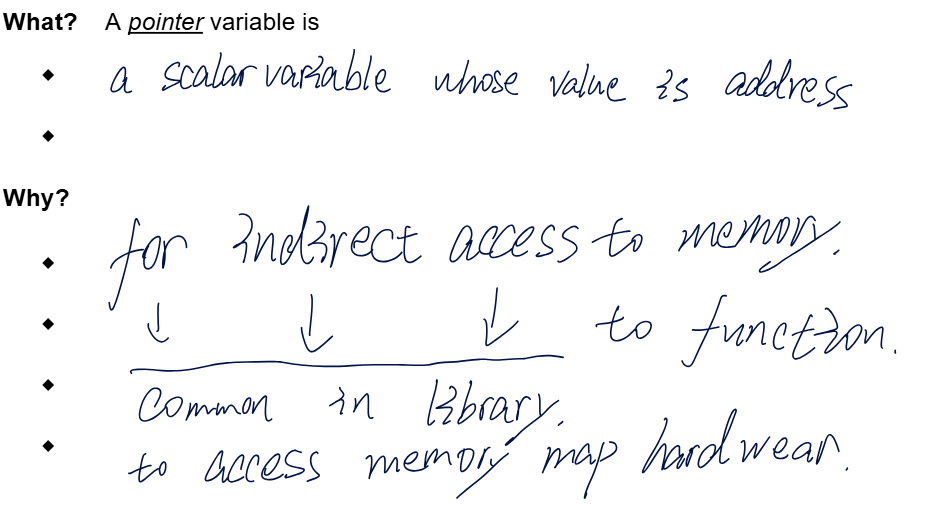 What? A pointer variable is
◆ a scalar variable whose value is address
◆
Why?
◆ for indirect access to memory.
◆ ↓ ↓ ↓ to function.
◆ common in library.
◆ to access memory map hardwear.